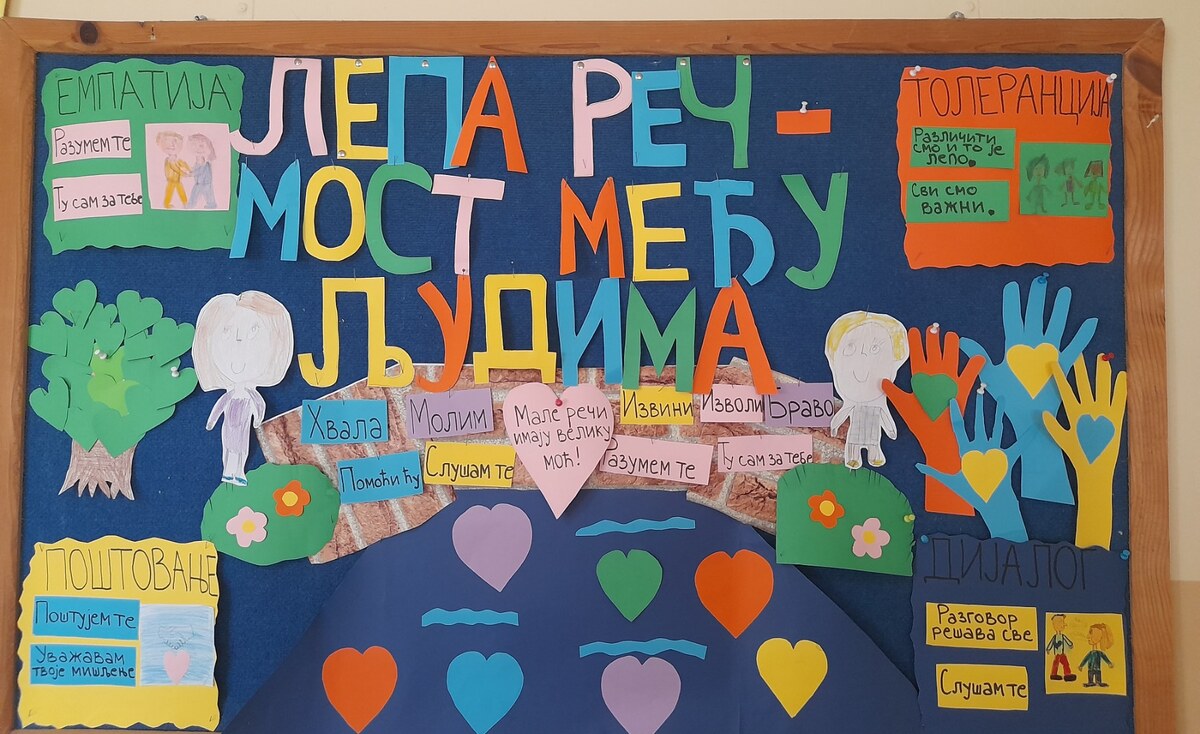 ЕМПАТИЈА
Разумем те
Ту сам за тебе
ЛЕПА РЕЧ -
МОСТ МЕЂУ
ЉУДИМА
ТОЛЕРАНЦИЈА
Различити
смо и то је
лепо.
Сви смо
важни.
Хвала
Молим
Мале речи
имају велику
моћ!
Извини
Изволи
Браво
Помоћи ћу
Слушам те
Разумем те
Ту сам за тебе
ПОШТОВАЊЕ
Поштујем те
Уважавам
твоје мишљење
ДИЈАЛОГ
Разговор
решава све
Слушам те